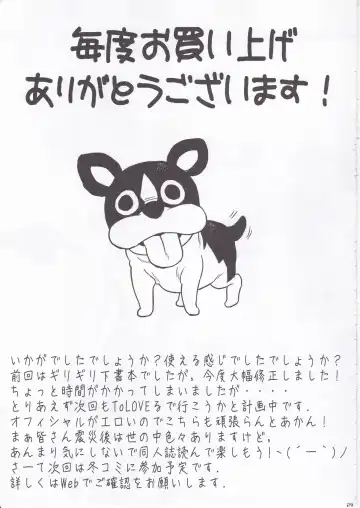 毎度お買い上げ
ありがとうございます！
いかがでしたでしょうか？使える感じでしたでしょうか？
前回はギリギリ下書本でしたが、今度大幅修正しました！
ちょっと時間がかかってしまいましたが・・・・
とりあえず次回もToLOVEるで行こうかと計画中です。
オフィシャルがエロいのでこちらも頑張らんとあかん！
まぁ皆さん震災後は世の中色々ありますけど、
あんまり気にしないで同人誌読んで楽しもう！ヽ(´ー｀)ノ
さーて次回は冬コミに参加予定です。
詳しくはWebでご確認をお願いします.